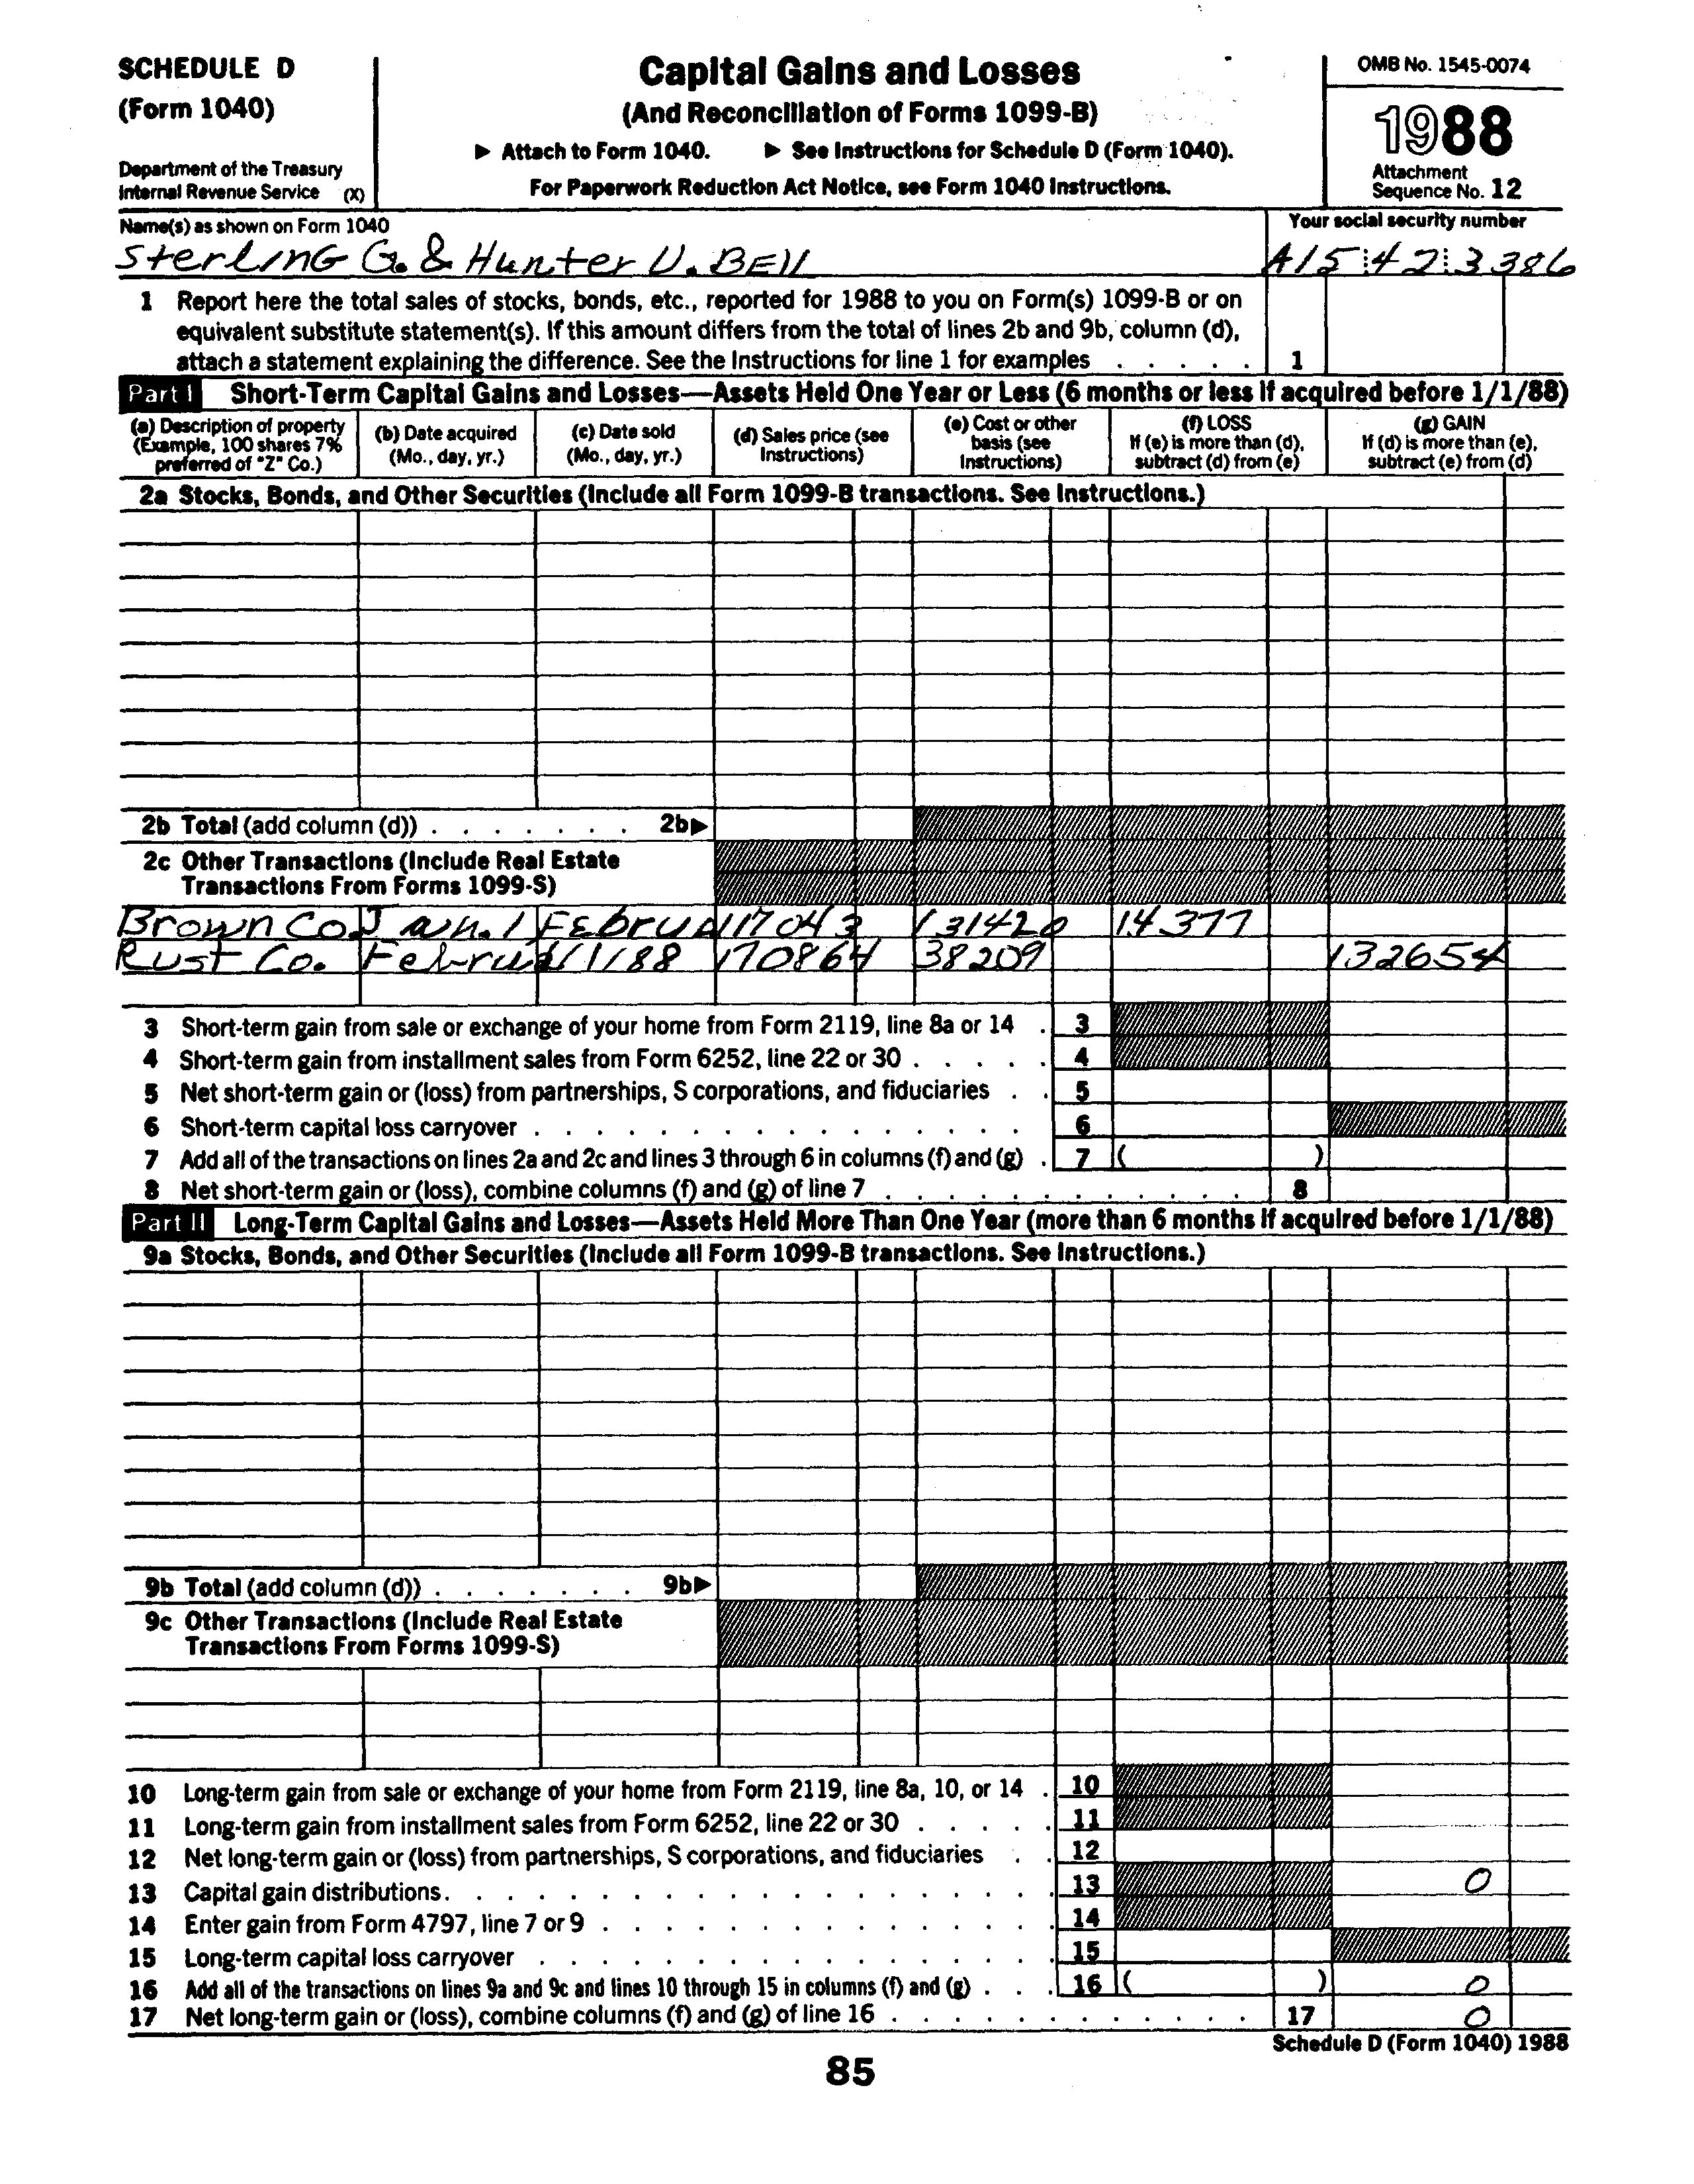 SCHEDULE D
(Form 1040)
Department of the Treasury
Internal Revenue Service (X)
Capital Gains and Losses
(And Reconciliation of Forms 1099-B)
▶ Attach to Form 1040. ▶ See Instructions for Schedule D (Form 1040).
For Paperwork Reduction Act Notice, see Form 1040 Instructions.
OMB No. 1545-0074
1988
Attachment
Sequence No. 12
Name(s) as shown on Form 1040
Your social security number
Sterling G. & Hunter U. Bell
A15 42 3386
1 Report here the total sales of stocks, bonds, etc., reported for 1988 to you on Form(s) 1099-B or on
equivalent substitute statement(s). If this amount differs from the total of lines 2b and 9b, column (d),
attach a statement explaining the difference. See the Instructions for line 1 for examples . . . . . 1
Part I Short-Term Capital Gains and Losses—Assets Held One Year or Less (6 months or less if acquired before 1/1/88)
(a) Description of property
(Example, 100 shares 7%
preferred of "Z" Co.)
(b) Date acquired
(Mo., day, yr.)
(c) Date sold
(Mo., day, yr.)
(d) Sales price (see
Instructions)
(e) Cost or other
basis (see
Instructions)
(f) LOSS
If (e) is more than (d),
subtract (d) from (e)
(g) GAIN
If (d) is more than (e),
subtract (e) from (d)
2a Stocks, Bonds, and Other Securities (Include all Form 1099-B transactions. See Instructions.)
2b Total (add column (d)) . . . . . . . 2b▶
2c Other Transactions (Include Real Estate
Transactions From Forms 1099-S)
Brown Co. Jan. 1 Februa 117043 131420 14377
Rust Co. Februa 1/1/88 170864 38209 132654
3 Short-term gain from sale or exchange of your home from Form 2119, line 8a or 14 . 3
4 Short-term gain from installment sales from Form 6252, line 22 or 30 . . . . . 4
5 Net short-term gain or (loss) from partnerships, S corporations, and fiduciaries . . 5
6 Short-term capital loss carryover . . . . . . . . . . . . . . . . 6
7 Add all of the transactions on lines 2a and 2c and lines 3 through 6 in columns (f) and (g) . 7 ( )
8 Net short-term gain or (loss), combine columns (f) and (g) of line 7 . . . . . . . . . . . . 8
Part II Long-Term Capital Gains and Losses—Assets Held More Than One Year (more than 6 months if acquired before 1/1/88)
9a Stocks, Bonds, and Other Securities (Include all Form 1099-B transactions. See Instructions.)
9b Total (add column (d)) . . . . . . . 9b▶
9c Other Transactions (Include Real Estate
Transactions From Forms 1099-S)
10 Long-term gain from sale or exchange of your home from Form 2119, line 8a, 10, or 14 . 10
11 Long-term gain from installment sales from Form 6252, line 22 or 30 . . . . . 11
12 Net long-term gain or (loss) from partnerships, S corporations, and fiduciaries . . 12
13 Capital gain distributions. . . . . . . . . . . . . . . . . . . 13 0
14 Enter gain from Form 4797, line 7 or 9 . . . . . . . . . . . . . . 14
15 Long-term capital loss carryover . . . . . . . . . . . . . . . . 15
16 Add all of the transactions on lines 9a and 9c and lines 10 through 15 in columns (f) and (g) . . . 16 ( ) 0
17 Net long-term gain or (loss), combine columns (f) and (g) of line 16 . . . . . . . . . . . . 17 0
Schedule D (Form 1040) 1988
85